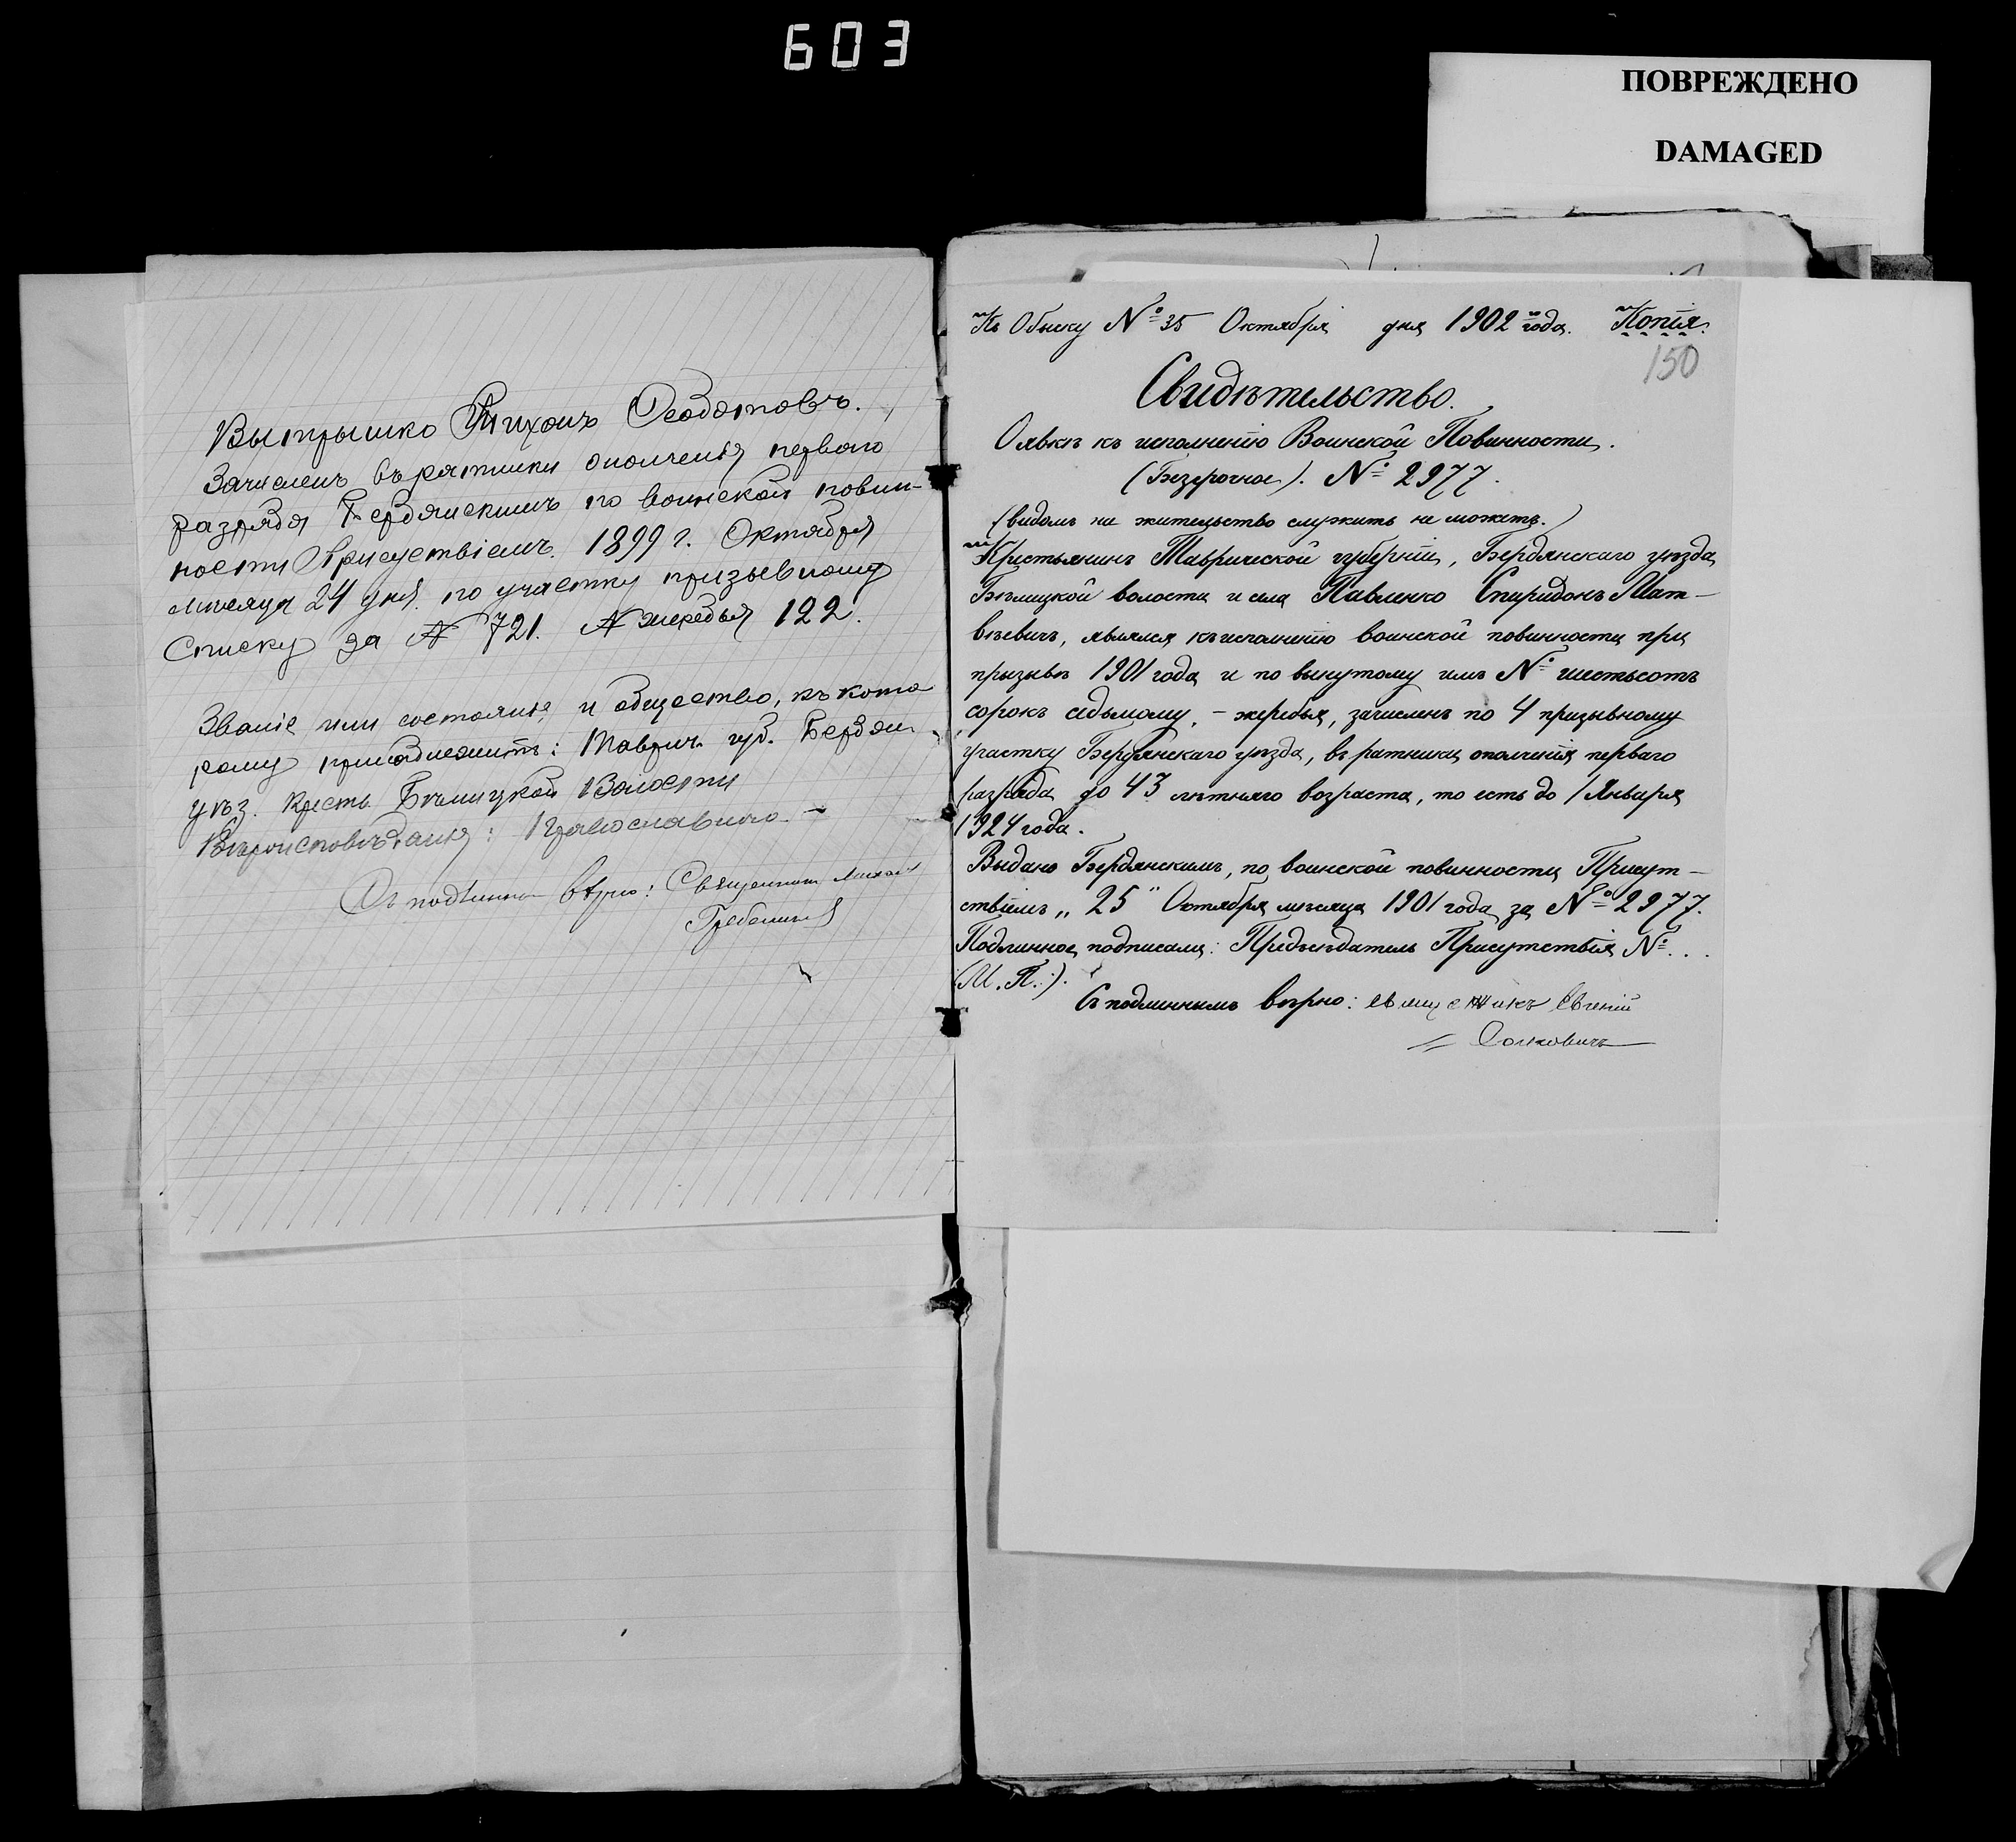 603
ПОВРЕЖДЕНО
DAMAGED
Вытрышко Тихонъ Феодотовъ.
Зачисленъ въ ратники ополченія перваго
разряда Бердянскимъ по воинской повин-
ности Присуствіемъ. 1899 г. Октября
мѣсяца 24 дня. по участку призывному
Списку за № 721. № жеребья 122.
Званіе или состоянія, и общество, къ кото
рому принадлежитъ: Таврич. губ. Бердян
уѣз. крест. Бѣлицкой Волости
Вѣроисповѣданія: Православнаго. –
Съ подлинным вѣрно: Священник Михаил
Къ Обыску № 35 Октября дня 1902 года. Копія.
150
Свидѣтельство.
О явкѣ къ исполненію Воинской Повинности.
(Безсрочное). № 2977.
(видомъ на жительство служить не можетъ.)
Крестьянинъ Таврической губерніи, Бердянскаго уѣзда,
Бѣлицкой волости и села Павленко Спиридонъ Мат-
вѣевичъ, являлся къ исполненію воинской повинности при
призывѣ 1901 года и по вынутому имъ № шестьсотъ
сорокъ седьмому, – жеребья, зачисленъ по 4 призывному
участку Бердянскаго уѣзда, въ ратники ополченія перваго
разряда до 43 лѣтняго возраста, то есть до 1 Января
1924 года.
Выдано Бердянскимъ, по воинской повинности Присут-
ствіемъ „ 25 " Октября мѣсяца 1901 года за № 2977.
Подлинное подписали: Предсѣдатель Присутствія №...
(М. П.).
Съ подлиннымъ вѣрно: священникъ Евгеній